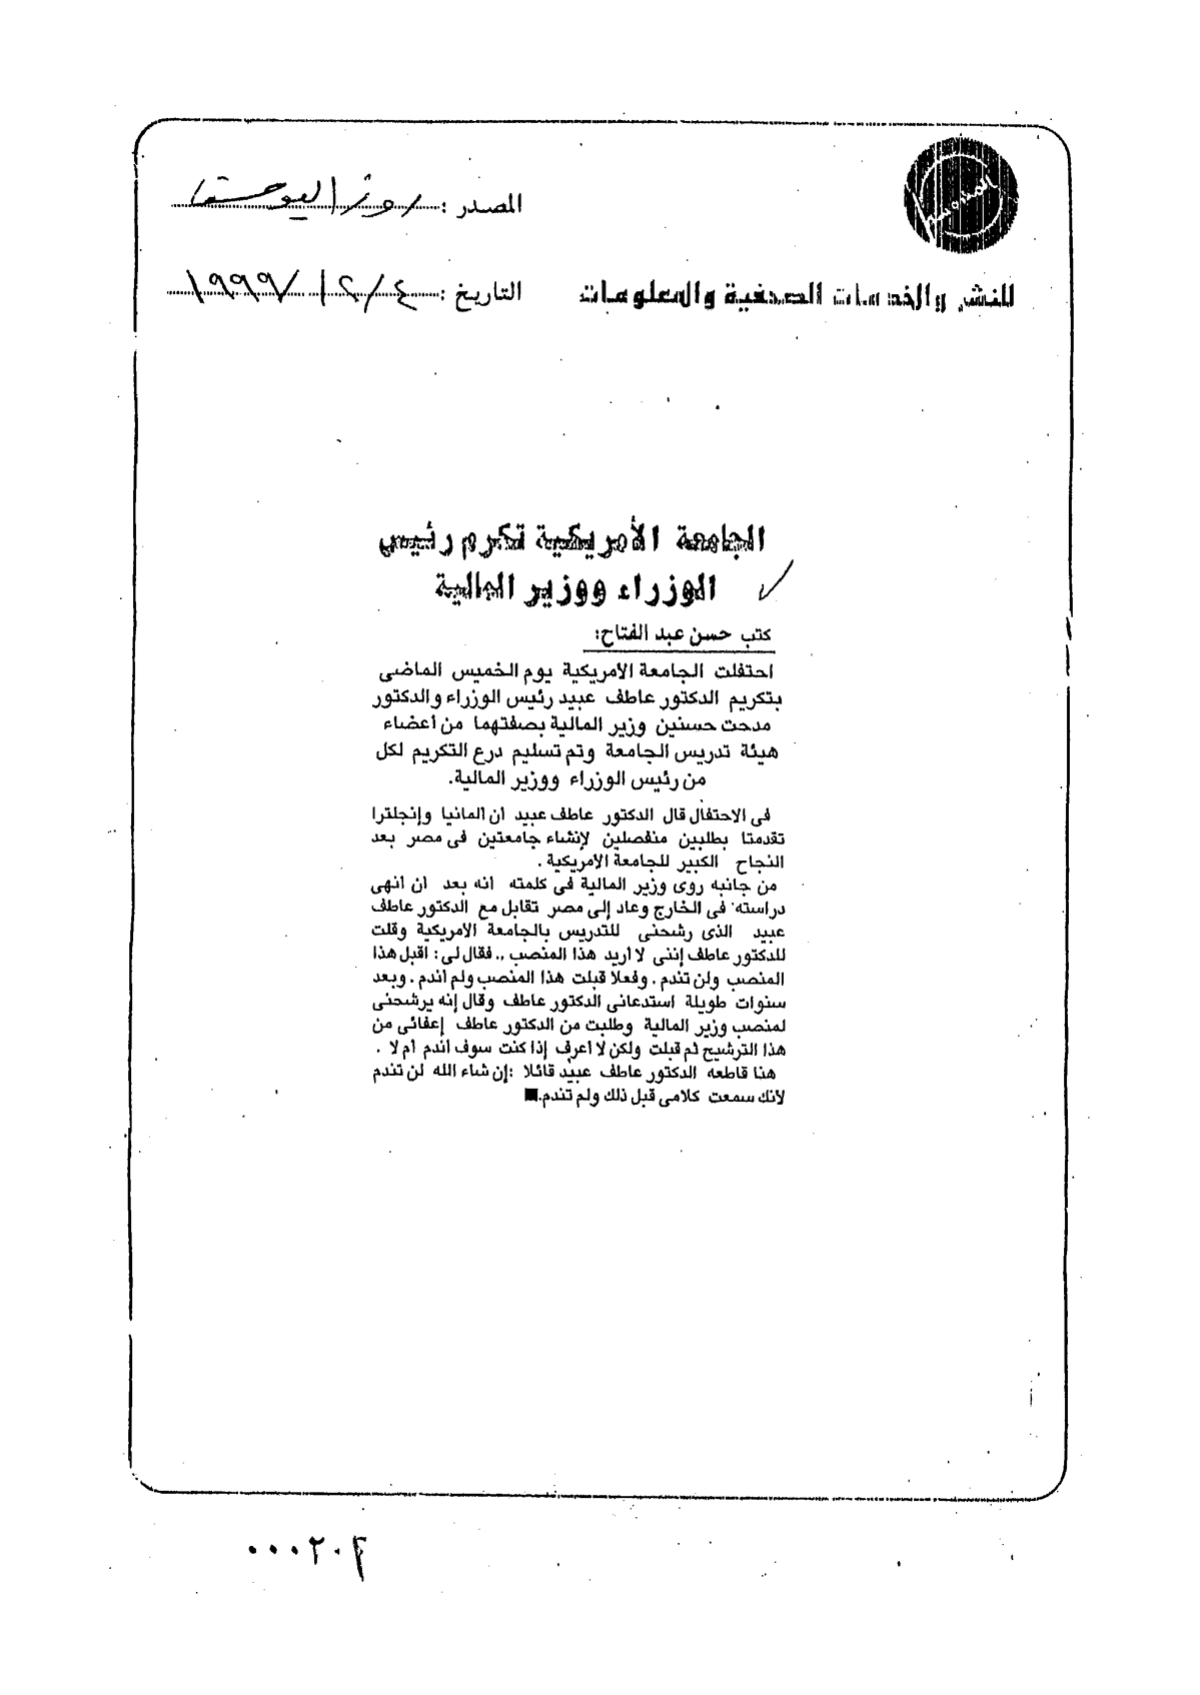 المصدر : روز اليوسف
للنشر والخدمات الصحفية والمعلومات
التاريخ : ٤ / ١٢ / ١٩٩٩
الجامعة الأمريكية تكرم رئيس
الوزراء ووزير المالية
كتب حسن عبد الفتاح:
احتفلت الجامعة الامريكية يوم الخميس الماضى
بتكريم الدكتور عاطف عبيد رئيس الوزراء والدكتور
مدحت حسنين وزير المالية بصفتهما من أعضاء
هيئة تدريس الجامعة وتم تسليم درع التكريم لكل
من رئيس الوزراء ووزير المالية.
فى الاحتفال قال الدكتور عاطف عبيد ان المانيا وإنجلترا
تقدمتا بطلبين منفصلين لإنشاء جامعتين فى مصر بعد
النجاح الكبير للجامعة الامريكية .
من جانبه روى وزير المالية فى كلمته انه بعد ان انهى
دراسته فى الخارج وعاد إلى مصر تقابل مع الدكتور عاطف
عبيد الذى رشحنى للتدريس بالجامعة الامريكية وقلت
للدكتور عاطف إننى لا اريد هذا المنصب .. فقال لى : اقبل هذا
المنصب ولن تندم . وفعلا قبلت هذا المنصب ولم اندم . وبعد
سنوات طويلة استدعانى الدكتور عاطف وقال إنه يرشحنى
لمنصب وزير المالية وطلبت من الدكتور عاطف إعفائى من
هذا الترشيح ثم قبلت ولكن لا أعرف إذا كنت سوف اندم ام لا .
هنا قاطعه الدكتور عاطف عبيد قائلا :إن شاء الله لن تندم
لانك سمعت كلامى قبل ذلك ولم تندم.■